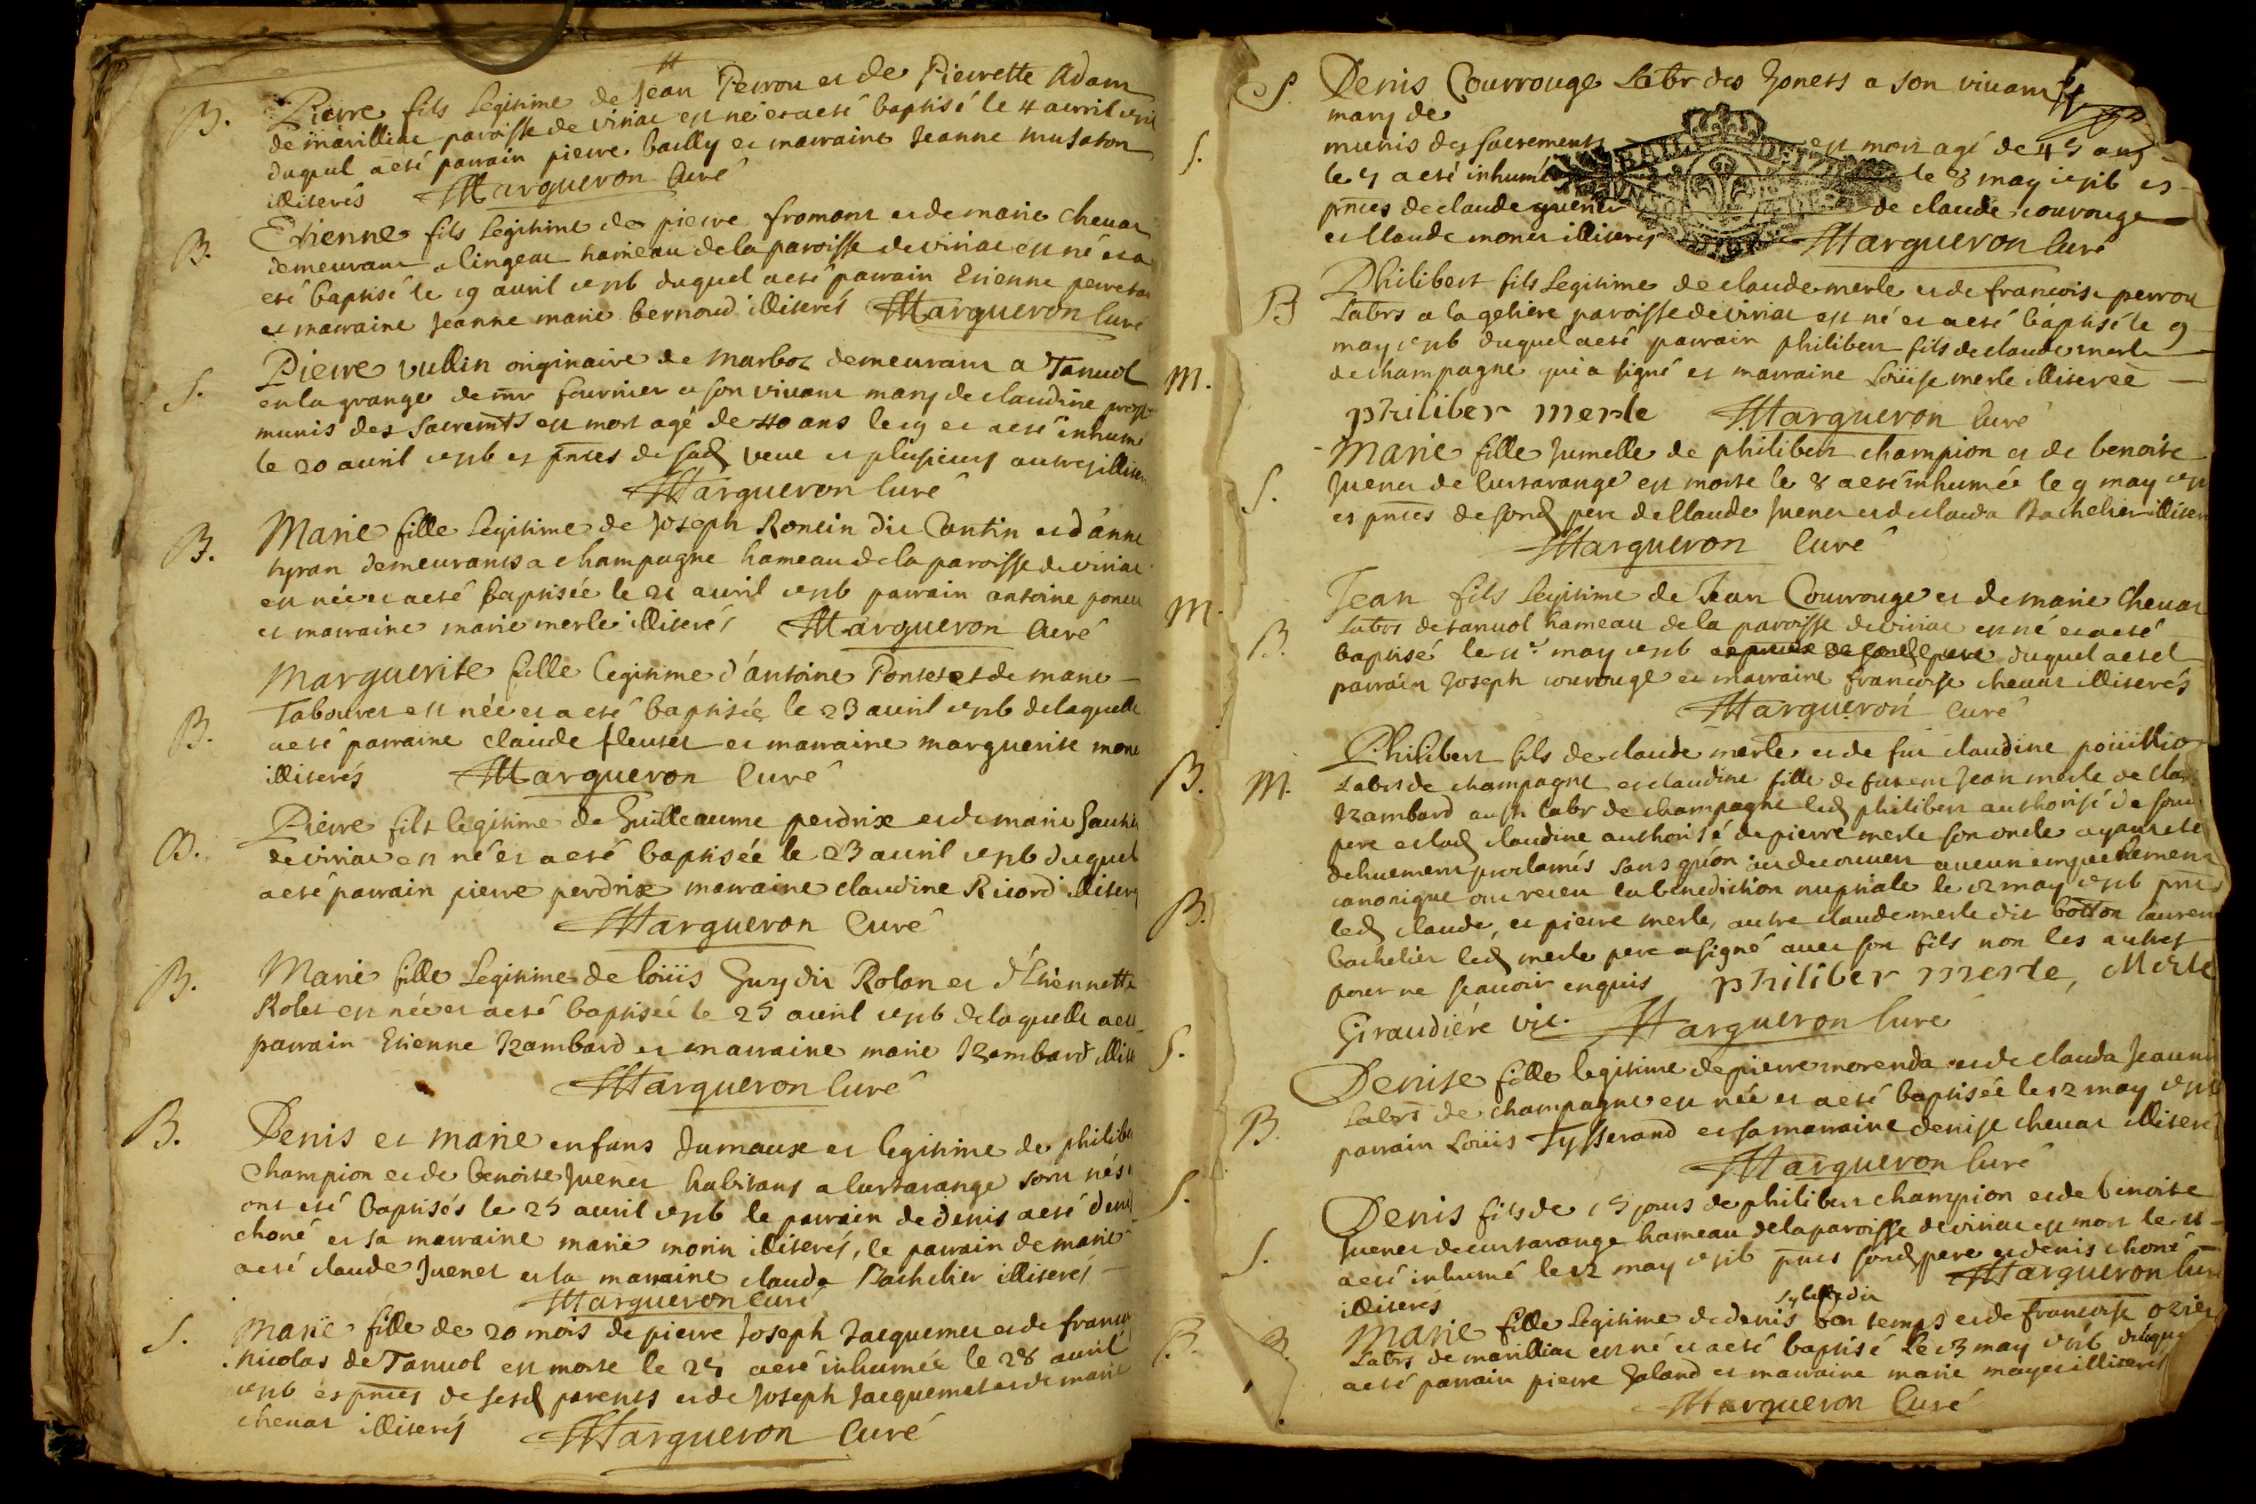 B. Pierre fils legitime de Jean Perrou et de Pierrette Adam
de marilliac paroisse de viriac est né et a eté baptisé le 4 avril
duquel a eté parrain pierre bailly et marraine Jeanne musaton
illiterés Margueron Curé
B. Etienne fils legitime de pierre fromont et de marie chevat
demeurant a lingeat hameau de la paroisse de viriac est né et a
eté baptisé le 19 avril 1716 duquel a eté parrain Etienne
et marraine Jeanne marie bernoud illiterés Margueron Curé
S. Pierre vullin originaire de Marboz demeurant a Tanvol
en la grange de mr fournier a son vivant mary de claudine
munis des Sacremts est mort agé de 40 ans le 19 et a eté inhumé
le 20 avril 1716 es pntes de sad veue et plusieurs autres
Margueron Curé
B. Marie fille legitime de Joseph Roncin dit Cantin et d'anne
tyran demeurants a champagne hameau de la paroisse de viriac
est née et a eté baptisée le 21 avril 1716 parrain antoine
et marraine marie merle illiterés Margueron Curé
B. Marguerite fille legitime d'antoine Pontet et de marie
Tabouret est née et a eté baptisée le 23 avril 1716 de laquelle
a eté parraine claude fleuret et marraine marguerite
illiterés Margueron Curé
B. Pierre fils legitime de Guilleaume perdrix et de marie
de viriac est né et a eté baptisée le 23 avril 1716 duquel
a eté parrain pierre perdrix marraine claudine Ricord
Margueron Curé
B. Marie fille legitime de loüis Guy dit Rolan et d'Etiennette
Rolet est née et a eté baptisée le 25 avril 1716 de laquelle a eté
parrain Etienne Izambard et marraine marie Izambard
Margueron Curé
B. Denis et marie enfans Jumaux et legitime de
champion et de benoite Juenet habitans a curtarange sont nés
ont eté baptisés le 25 avril 1716 le parrain de denis a eté denis
choné et sa marraine marie morin illiterés, le parrain de marie
a eté claude Juenet et la marraine clauda Bachelier illiterés
Margueron Curé
S. Marie fille de 20 mois de pierre Joseph Jacquemet et de
nicolas de Tanvol est morte le 27 a eté inhumée le 28 avril
1716 es pntes de sesd parents et de Joseph Jacquemet et de marie
chevat illiterés Margueron Curé
S. Denis Courrouge Labr des Jonets a son vivant
mary de
munis des sacrements est mort agé de 45 ans
le 7 a eté inhumé le 8 may 1716 es
pntes de claude guerier de claude courouge
et Claude monet illiterés Margueron Curé
B Philibert fils legitime de claude merle et de francoise perrou
Labrs a la geliere paroisse de viriac est né et a eté baptisé le 9
may 1716 duquel a eté parrain philibert fils de claude merle
de champagne qui a signé et marraine Loüise merle illiterée
philiber merle Margueron Curé
S. Marie fille Jumelle de philibert champion et de benoite
Juenet de Curtarange est morte le 8 a eté inhumée le 9 may
es pntes de sond pere de Claude Juenet et de clauda Bachelier
Margueron Curé
B. Jean fils legitime de Jean Courrouge et de marie Chevat
Labrs de tanvol hameau de la paroisse de viriac est né et a eté
baptisé le 11e may 1716 es pntes de sond pere duquel a eté
parrain Joseph courouge et marraine francoise chevat illiterés
Margueron Curé
M. Philibert fils de claude merle et de fue claudine
Labrs de champagne et claudine fille de Jean merle de
Izambard aussi labr de champagne led philibert authorisé de
pere et lad claudine authorisé de pierre merle son oncle ayant eté
dehuement proclamés sans qu'on ait decouvert aucun empechement
canonique ont receu la benediction nuptiale le 12 may 1716 pnts
led claude, et pierre merle, autre claude merle dit botton
bachelier led merle pere a signé avec son fils non les autres
pour ne scavoir enquis philiber merle, Merle
Giraudiére vic. Margueron Curé
B. Denise fille legitime de pierre morenda et de clauda
Labrs de champagne est née et a eté baptisée le 12 may 1716
parrain Loüis Tysserand et sa marraine denise chevat illiterés
Margueron Curé
S. Denis fils de 15 jours de philibert champion et de benoite
Juenet de curtarange hameau de la paroisse de viriac est mort le 11
a eté inhumé le 12 may 1716 pnts sond pere et denis choné
illiterés Margueron Curé
B. Marie fille legitime de denis bon temps et de francoise
Labrs de marilliac est né et a eté baptisé le 13 may 1716
a eté parrain pierre Jaland et marraine marie illiterés
Margueron Curé